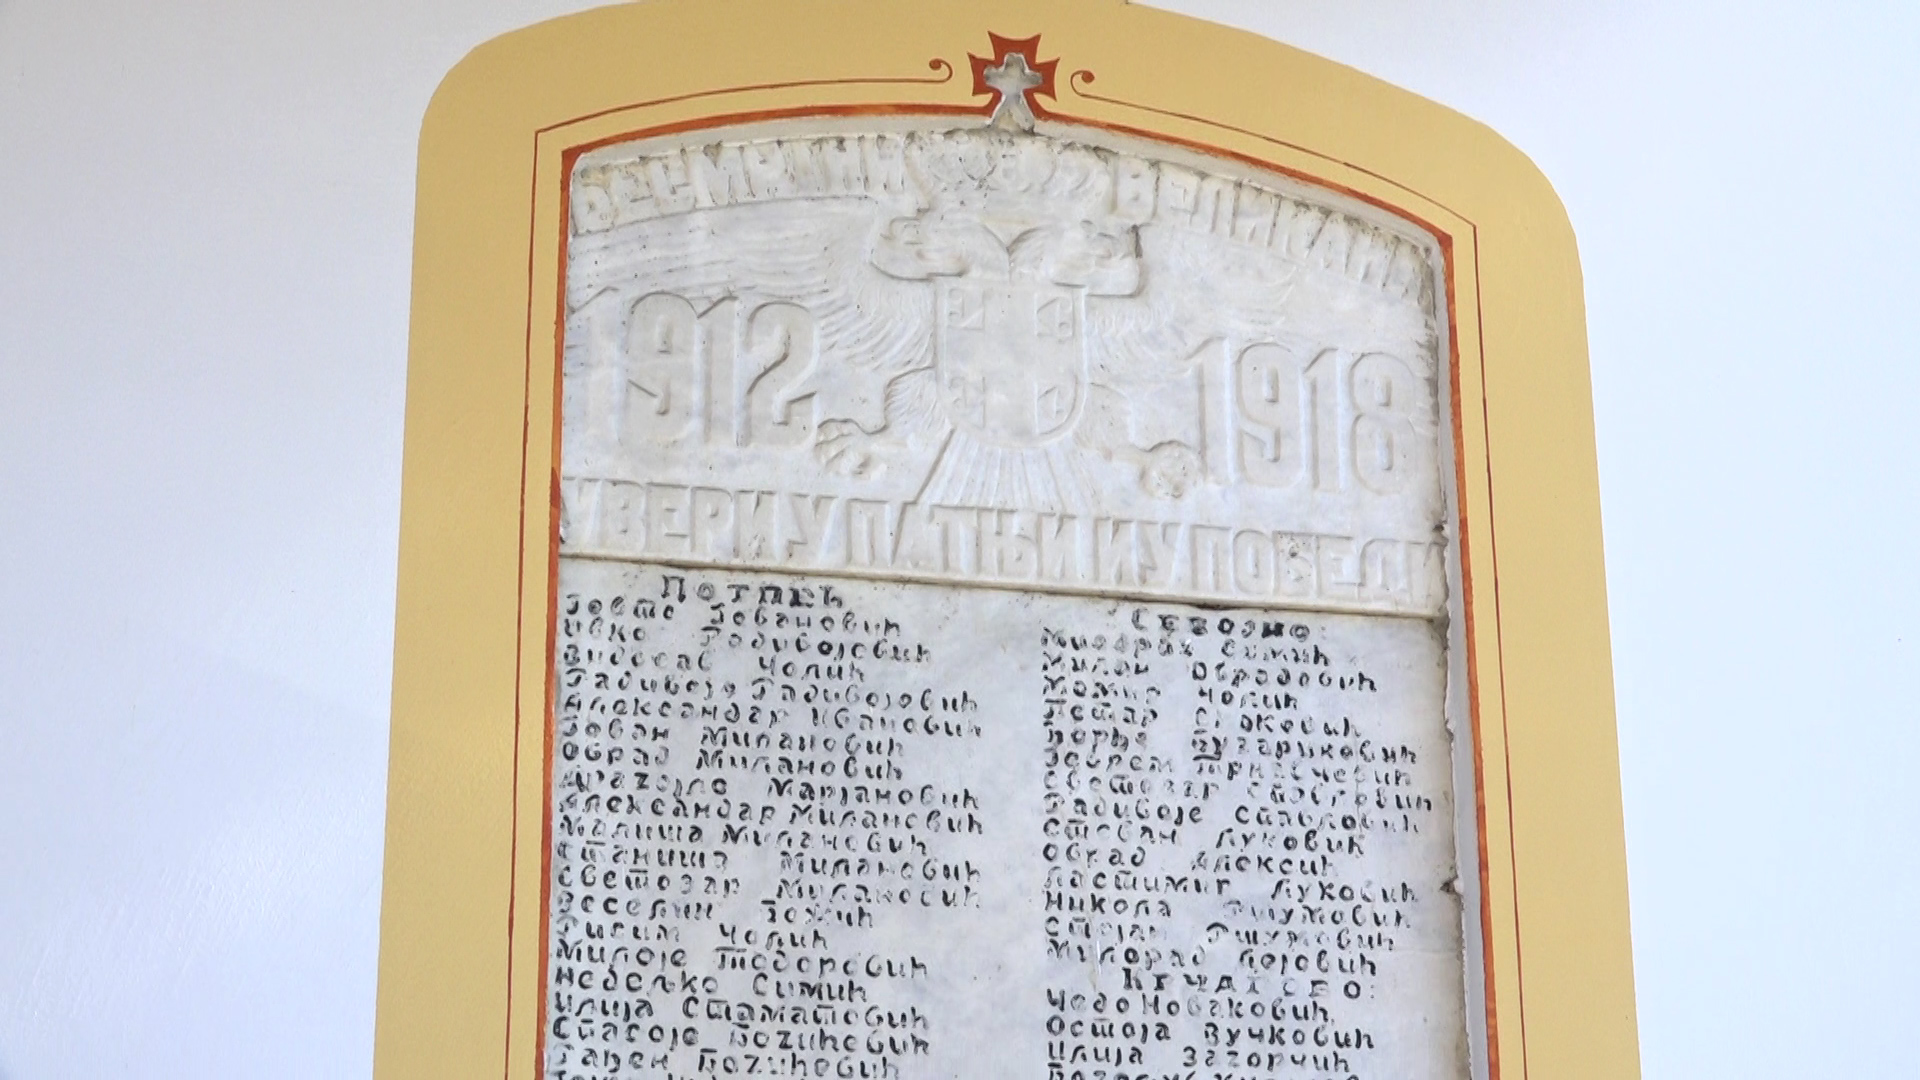 БЕСМРТНИ ВЕЛИКАНИ
1912 1918
У ВЕРИ У ПАТЊИ И У ПОБЕДИ
Потпећ
Јовановић
Ивко Радивојовић
Видосав Чолић
Радивоје Радивојовић
Александар Ивановић
Јован Милановић
Обрад Милановић
Драгојло Марјановић
Александар Милановић
Малиша Милановић
Станиша Милановић
Светозар Милановић
Веселин Божић
Чолић
Милоје Тодоровић
Недељко Симић
Илија Стаматовић
Спасоје Богићевић
Рађен Богићевић
Севојно:
Миодраг Симић
Милан Обрадовић
Момир Чолић
Петар Ђоковић
Ђорђе Бугариновић
Јеврем
Светозар
Радивоје
Стеван Луковић
Обрад Алексић
Ластимир Луковић
Никола Ршумовић
Стојан Ршумовић
Милорад Лојовић
Крчагово:
Чедо Новаковић
Остоја Вучковић
Илија Загорчић